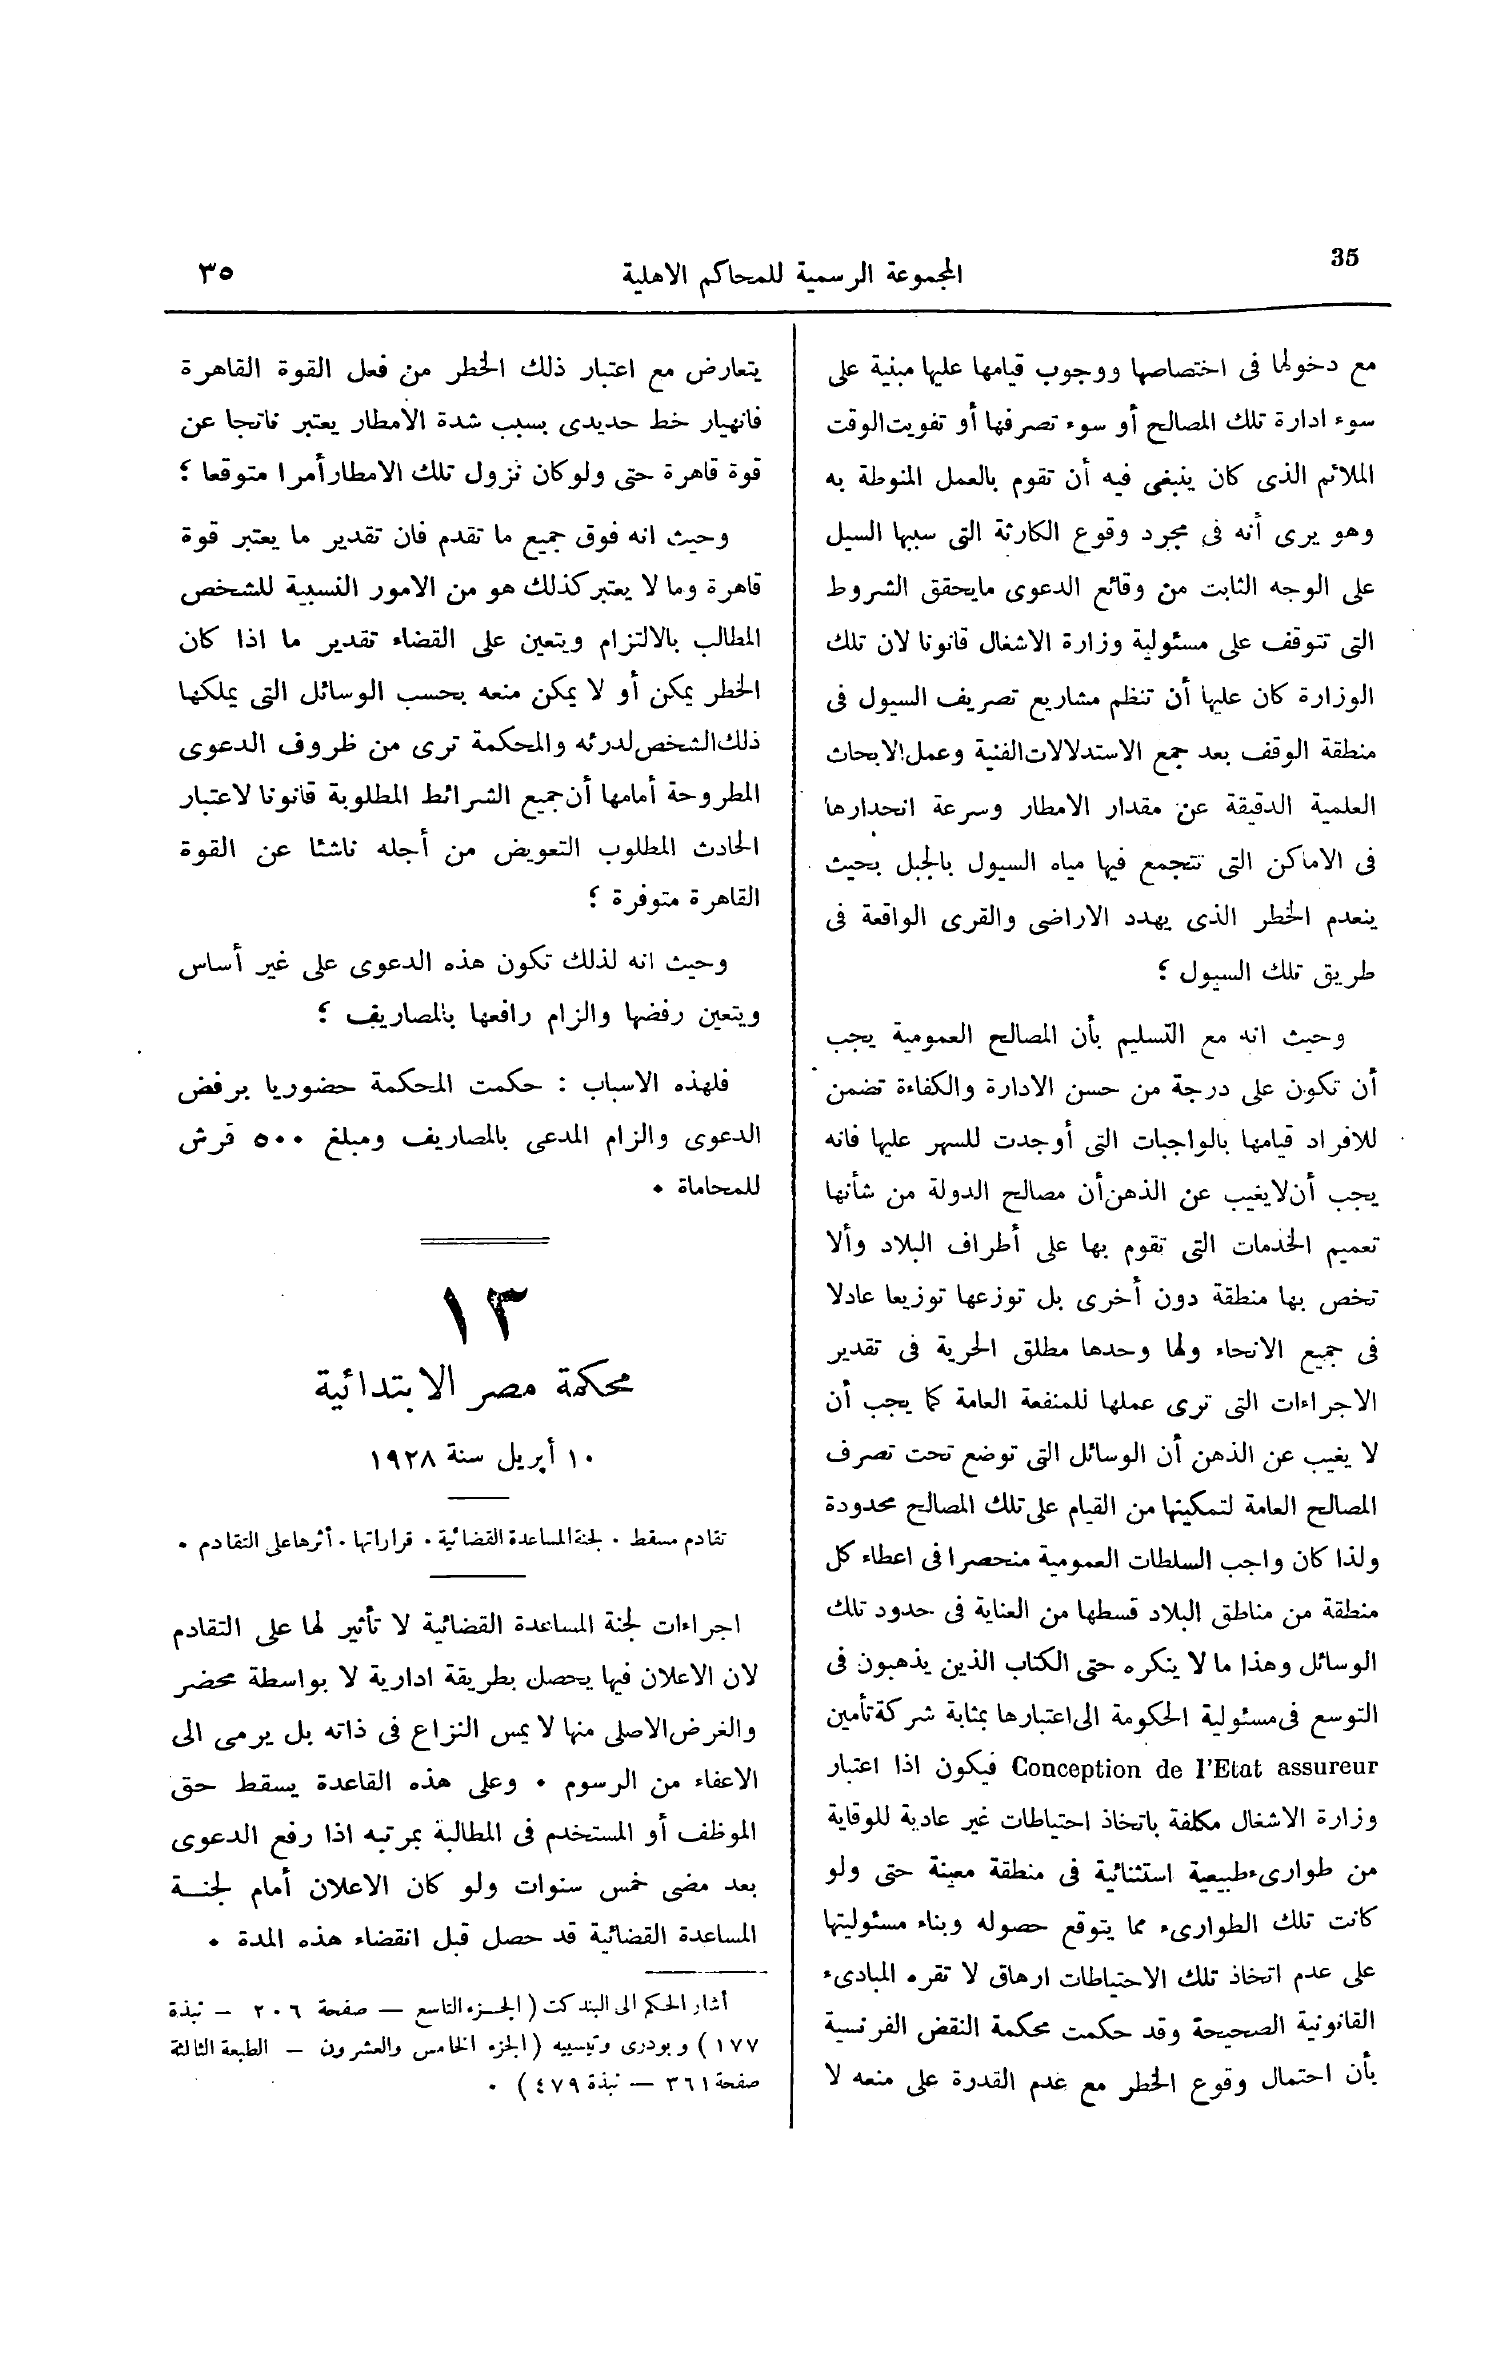 35
المجموعة الرسمية للمحاكم الاهلية
٣٥
مع دخولها فى اختصاصها ووجوب قيامها عليها مبنية على
سوء ادارة تلك المصالح أو سوء تصرفها أو تفويت الوقت
الملائم الذى كان ينبغى فيه أن تقوم بالعمل المنوطة به
وهو يرى أنه فى مجرد وقوع الكارثة التى سببها السيل
على الوجه الثابت من وقائع الدعوى مايحقق الشروط
التى تتوقف على مسئولية وزارة الاشغال قانونا لان تلك
الوزارة كان عليها أن تنظم مشاريع تصريف السيول فى
منطقة الوقف بعد جمع الاستدلالات الفنية وعمل الابحاث
العلمية الدقيقة عن مقدار الامطار وسرعة انحدارها
فى الاماكن التى تتجمع فيها مياه السيول بالجبل بحيث
ينعدم الخطر الذى يهدد الاراضى والقرى الواقعة فى
طريق تلك السيول ؛
وحيث انه مع التسليم بأن المصالح العمومية يجب
أن تكون على درجة من حسن الادارة والكفاءة تضمن
للافراد قيامها بالواجبات التى أوجدت للسهر عليها فانه
يجب أن لايغيب عن الذهن أن مصالح الدولة من شأنها
تعميم الخدمات التى تقوم بها على أطراف البلاد وألا
تخص بها منطقة دون أخرى بل توزعها توزيعا عادلا
فى جميع الانحاء ولها وحدها مطلق الحرية فى تقدير
الاجراءات التى ترى عملها للمنفعة العامة كما يجب أن
لا يغيب عن الذهن أن الوسائل التى توضع تحت تصرف
المصالح العامة لتمكينها من القيام على تلك المصالح محدودة
ولذا كان واجب السلطات العمومية منحصرا فى اعطاء كل
منطقة من مناطق البلاد قسطها من العناية فى حدود تلك
الوسائل وهذا ما لا ينكره حتى الكتاب الذين يذهبون فى
التوسع فى مسئولية الحكومة الى اعتبارها بمثابة شركة تأمين
Conception de l'Etat assureur فيكون اذا اعتبار
وزارة الاشغال مكلفة باتخاذ احتياطات غير عادية للوقاية
من طوارىء طبيعية استثنائية فى منطقة معينة حتى ولو
كانت تلك الطوارىء مما يتوقع حصوله وبناء مسئوليتها
على عدم اتخاذ تلك الاحتياطات ارهاق لا تقره المبادىء
القانونية الصحيحة وقد حكمت محكمة النقض الفرنسية
بأن احتمال وقوع الخطر مع عدم القدرة على منعه لا
يتعارض مع اعتبار ذلك الخطر من فعل القوة القاهرة
فانهيار خط حديدى بسبب شدة الامطار يعتبر ناتجا عن
قوة قاهرة حتى ولو كان نزول تلك الامطار أمرا متوقعا ؛
وحيث انه فوق جميع ما تقدم فان تقدير ما يعتبر قوة
قاهرة وما لا يعتبر كذلك هو من الامور النسبية للشخص
المطالب بالالتزام ويتعين على القضاء تقدير ما اذا كان
الخطر يمكن أو لا يمكن منعه بحسب الوسائل التى يملكها
ذلك الشخص لدرئه والمحكمة ترى من ظروف الدعوى
المطروحة أمامها أن جميع الشرائط المطلوبة قانونا لاعتبار
الحادث المطلوب التعويض من أجله ناشئا عن القوة
القاهرة متوفرة ؛
وحيث انه لذلك تكون هذه الدعوى على غير أساس
ويتعين رفضها والزام رافعها بالمصاريف ؛
فلهذه الاسباب : حكمت المحكمة حضوريا برفض
الدعوى والزام المدعى بالمصاريف ومبلغ ٥٠٠ قرش
للمحاماة .
١٣
محكمة مصر الابتدائية
١٠ أبريل سنة ١٩٢٨
تقادم مسقط . لجنة المساعدة القضائية . قراراتها . أثرها على التقادم .
اجراءات لجنة المساعدة القضائية لا تأثير لها على التقادم
لان الاعلان فيها يحصل بطريقة ادارية لا بواسطة محضر
والغرض الاصلى منها لا يمس النزاع فى ذاته بل يرمى الى
الاعفاء من الرسوم . وعلى هذه القاعدة يسقط حق
الموظف أو المستخدم فى المطالبة بمرتبه اذا رفع الدعوى
بعد مضى خمس سنوات ولو كان الاعلان أمام لجنة
المساعدة القضائية قد حصل قبل انقضاء هذه المدة .
أشار الحكم الى البندكت (الجزء التاسع — صفحة ٢٠٦ — نبذة
١٧٧) وبودرى وتيسييه (الجزء الخامس والعشرون — الطبعة الثالثة
صفحة ٣٦١ — نبذة ٤٧٩) .